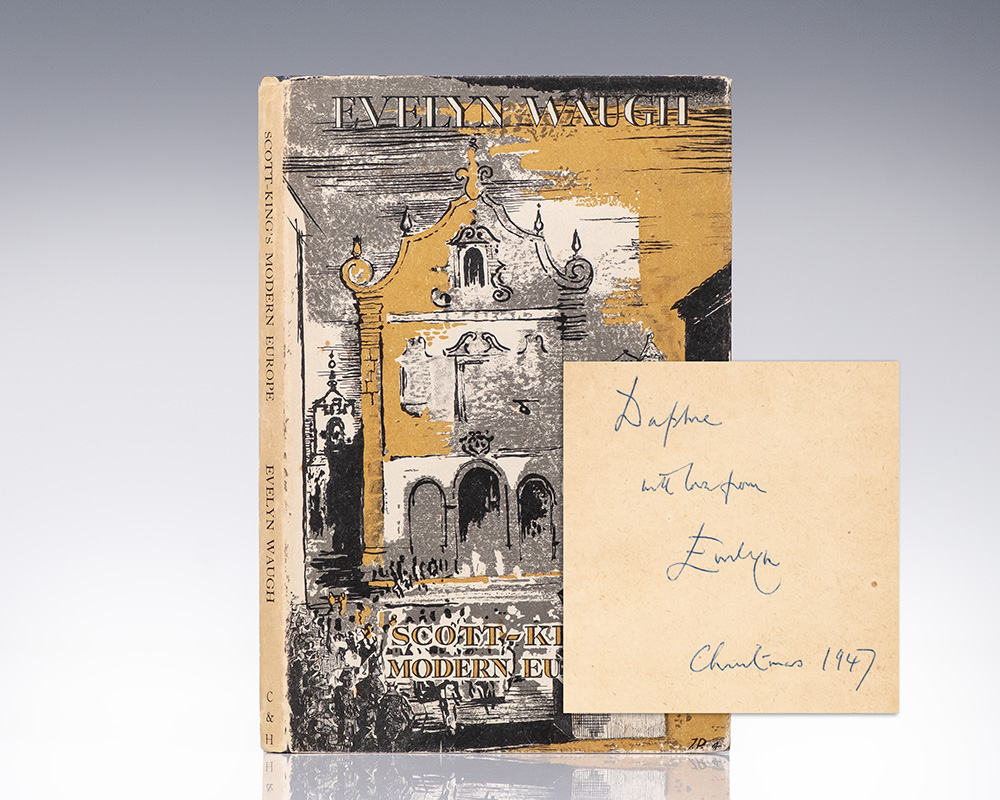 SCOTT-KING'S MODERN EUROPE
EVELYN WAUGH
C
&
H
EVELYN WAUGH
SCOTT-KI
MODERN EU
Daphne
with love from
Evelyn
Christmas 1947